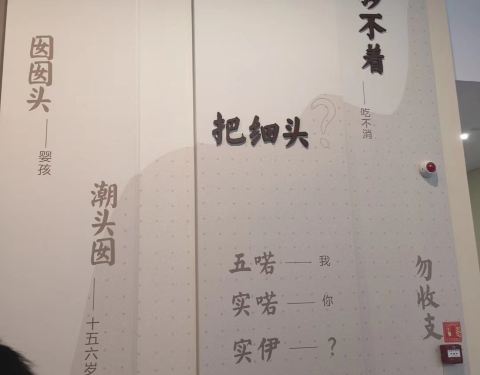 囡囡头——婴孩
潮头囡——十五六岁
把细头?
不着——吃不消
五喏——我
实喏——你
实伊——?
勿收支